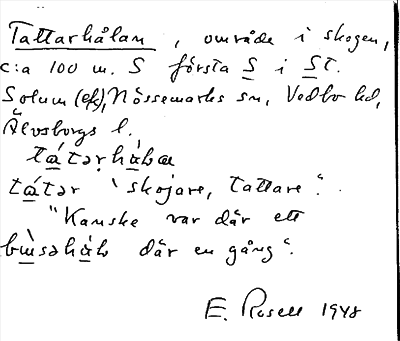 Tattarhålan, område i skogen,
c:a 100 m. S första S i St.
Solum (ek), Nössemarks sn, Vedbo hd,
Älvsborgs l.
tátərhåḷa
tátər "skojare, tattare".
"Kanske var där ett
där en gång".
E. Rosell 1948